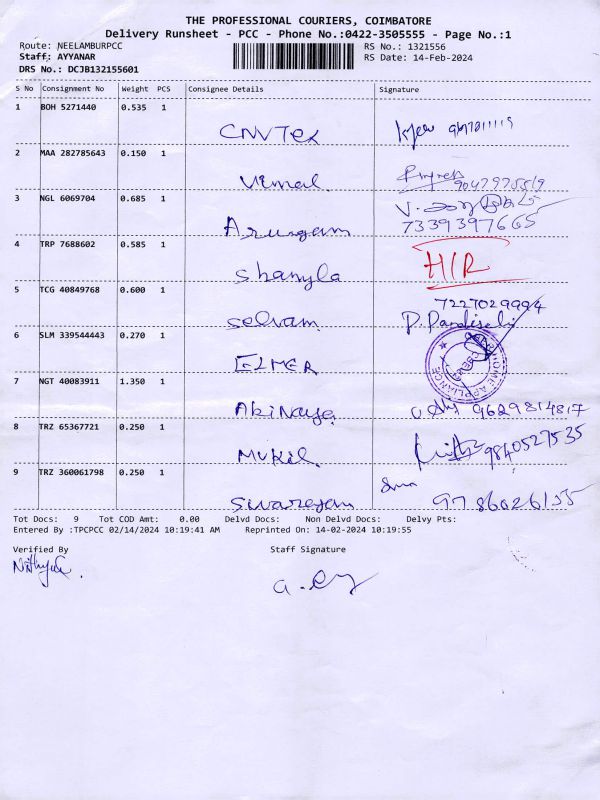 THE PROFESSIONAL COURIERS, COIMBATORE
Delivery Runsheet - PCC - Phone No.:0422-3505555 - Page No.:1
Route: NEELAMBURPCC
RS No.: 1321556
Staff: AYYANAR
RS Date: 14-Feb-2024
DRS No.: DCJB132155601
S No Consignment No Weight PCS Consignee Details Signature
1 BOH 5271440 0.535 1
CNVTex
2 MAA 282785643 0.150 1
Vimal
3 NGL 6069704 0.685 1
Arurgam 7339397665
4 TRP 7688602 0.585 1
Shanyla H/R
5 TCG 40849768 0.600 1
7227029994
Selvam P.
6 SLM 339544443 0.270 1
ELMER
HOME APPLIANCE
7 NGT 40083911 1.350 1
Abinaya 9629814817
8 TRZ 65367721 0.250 1
Mukil 9840527535
9 TRZ 360061798 0.250 1
9786026155
Tot Docs: 9 Tot COD Amt: 0.00 Delvd Docs: Non Delvd Docs: Delvy Pts:
Entered By :TPCPCC 02/14/2024 10:19:41 AM Reprinted On: 14-02-2024 10:19:55
Verified By Staff Signature